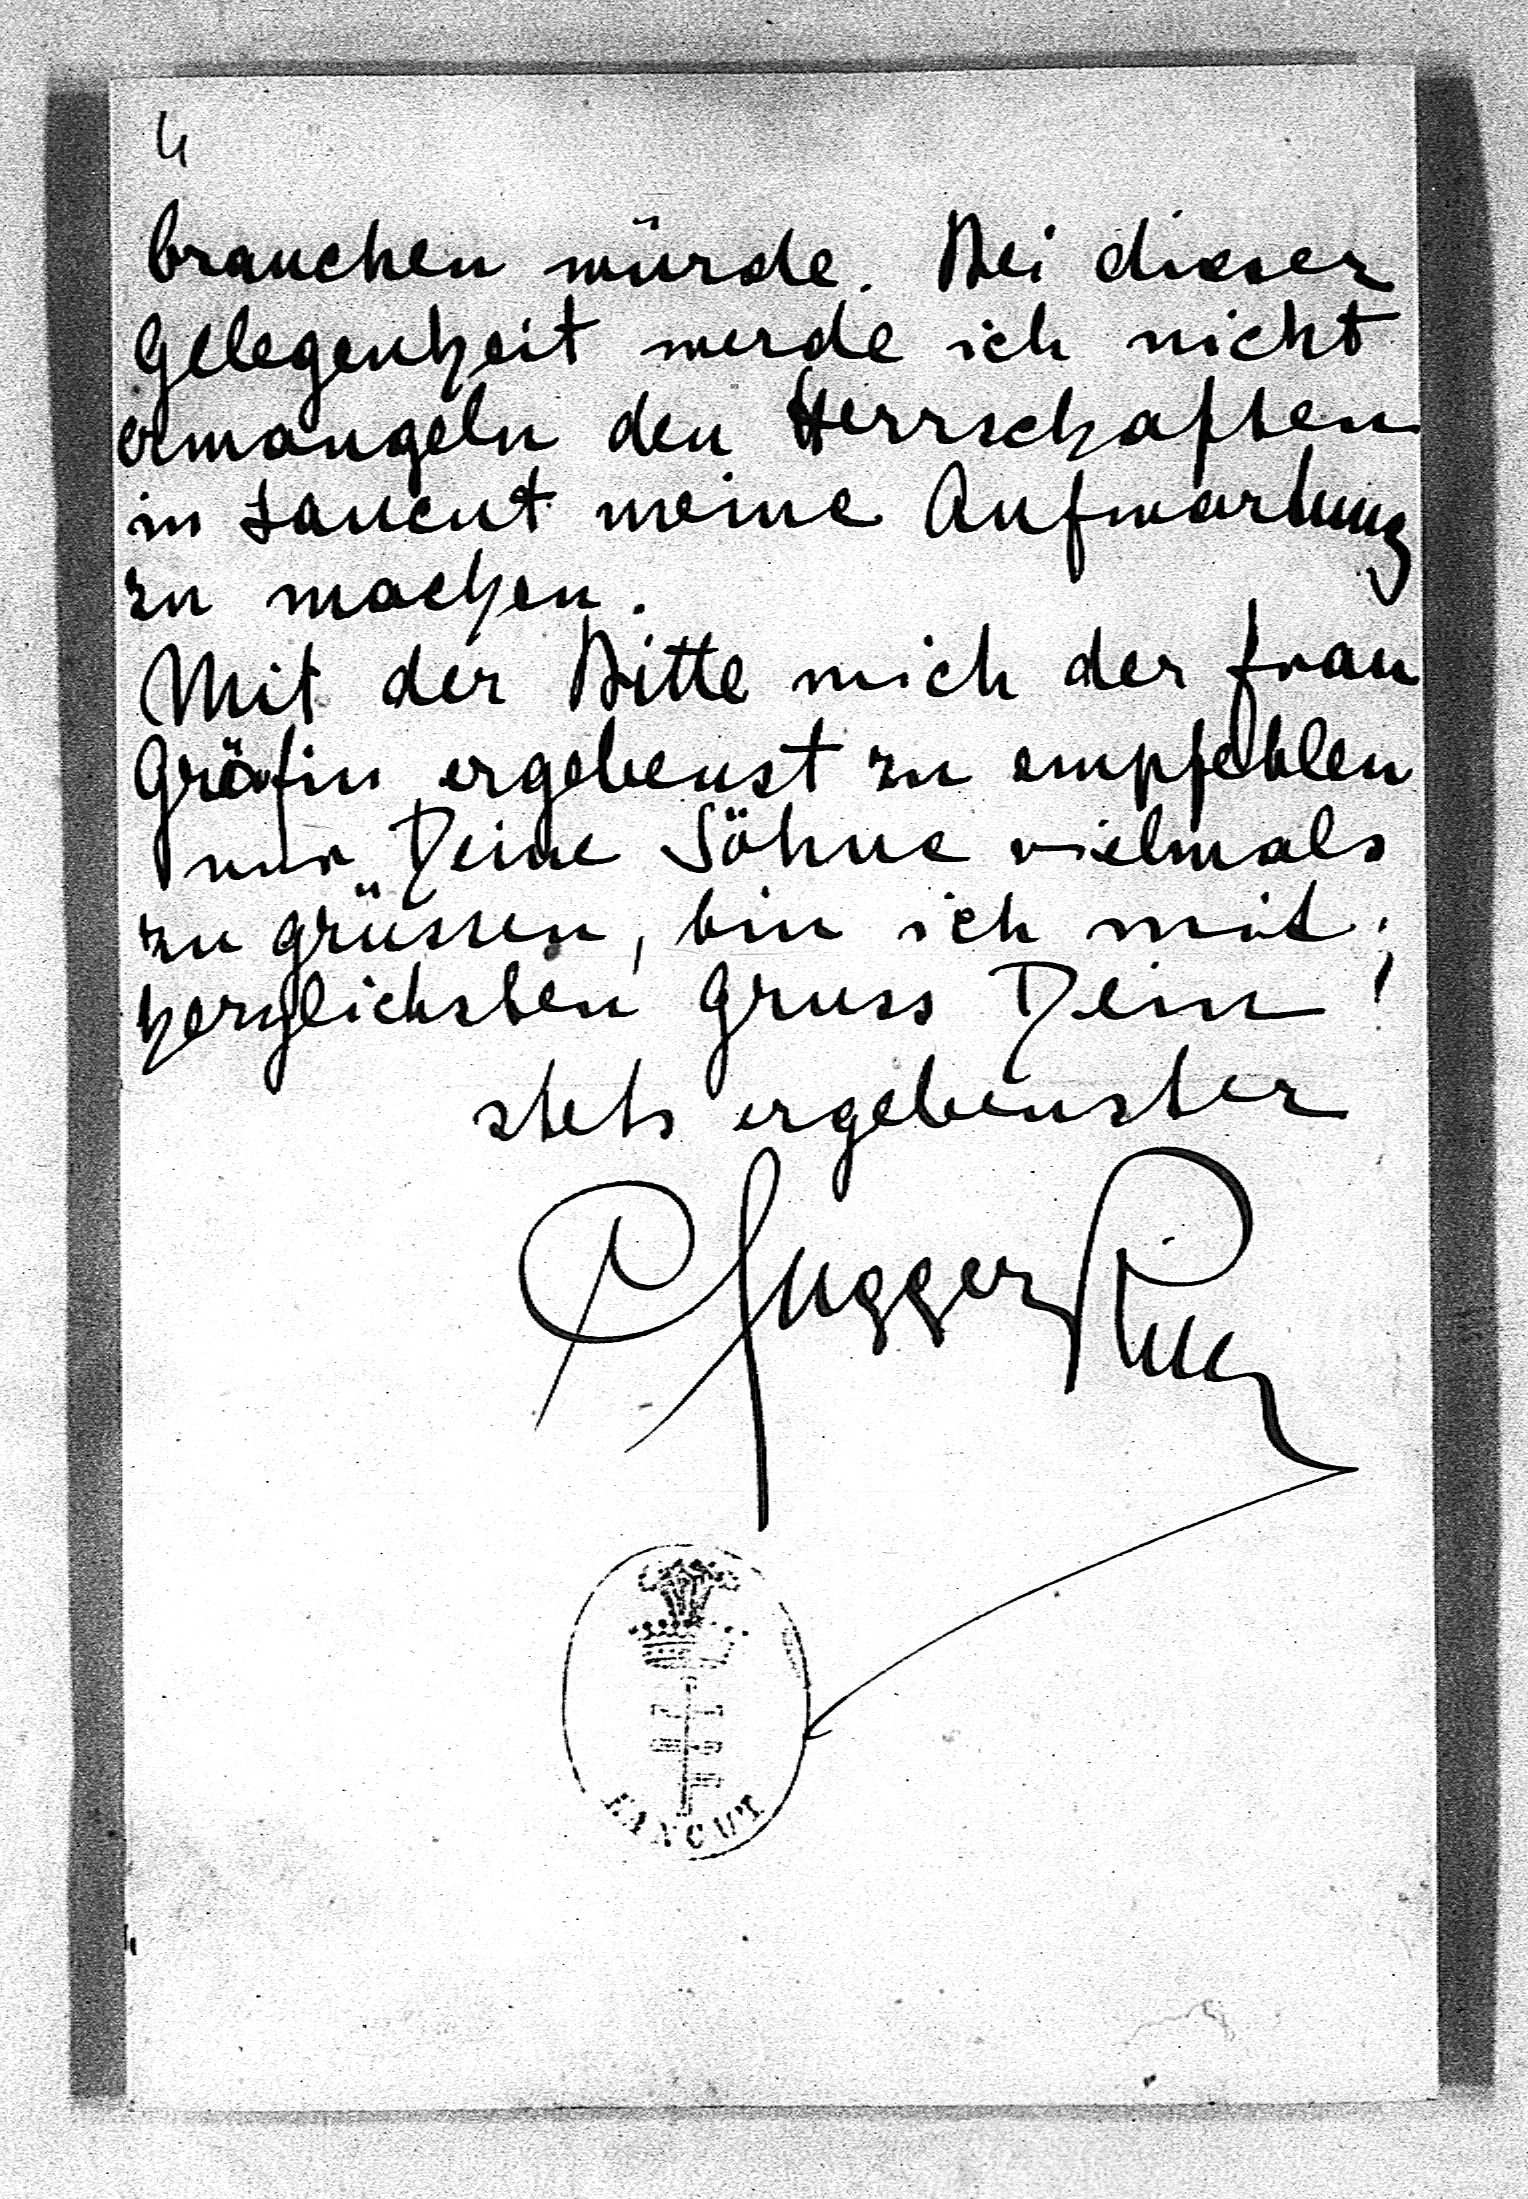 4
brauchen würde. Bei dieser
Gelegenheit werde ich nicht
ermangeln den Herrschaften
in Lancut meine Aufwartung
zu machen.
Mit der Bitte mich der Frau
Gräfin ergebenst zu empfehlen
und Deine Söhne vielmals
zu grüssen, bin ich mit
herzlichsten Gruss Dein
stets ergebenster
Fugger
ŁAŃCUT